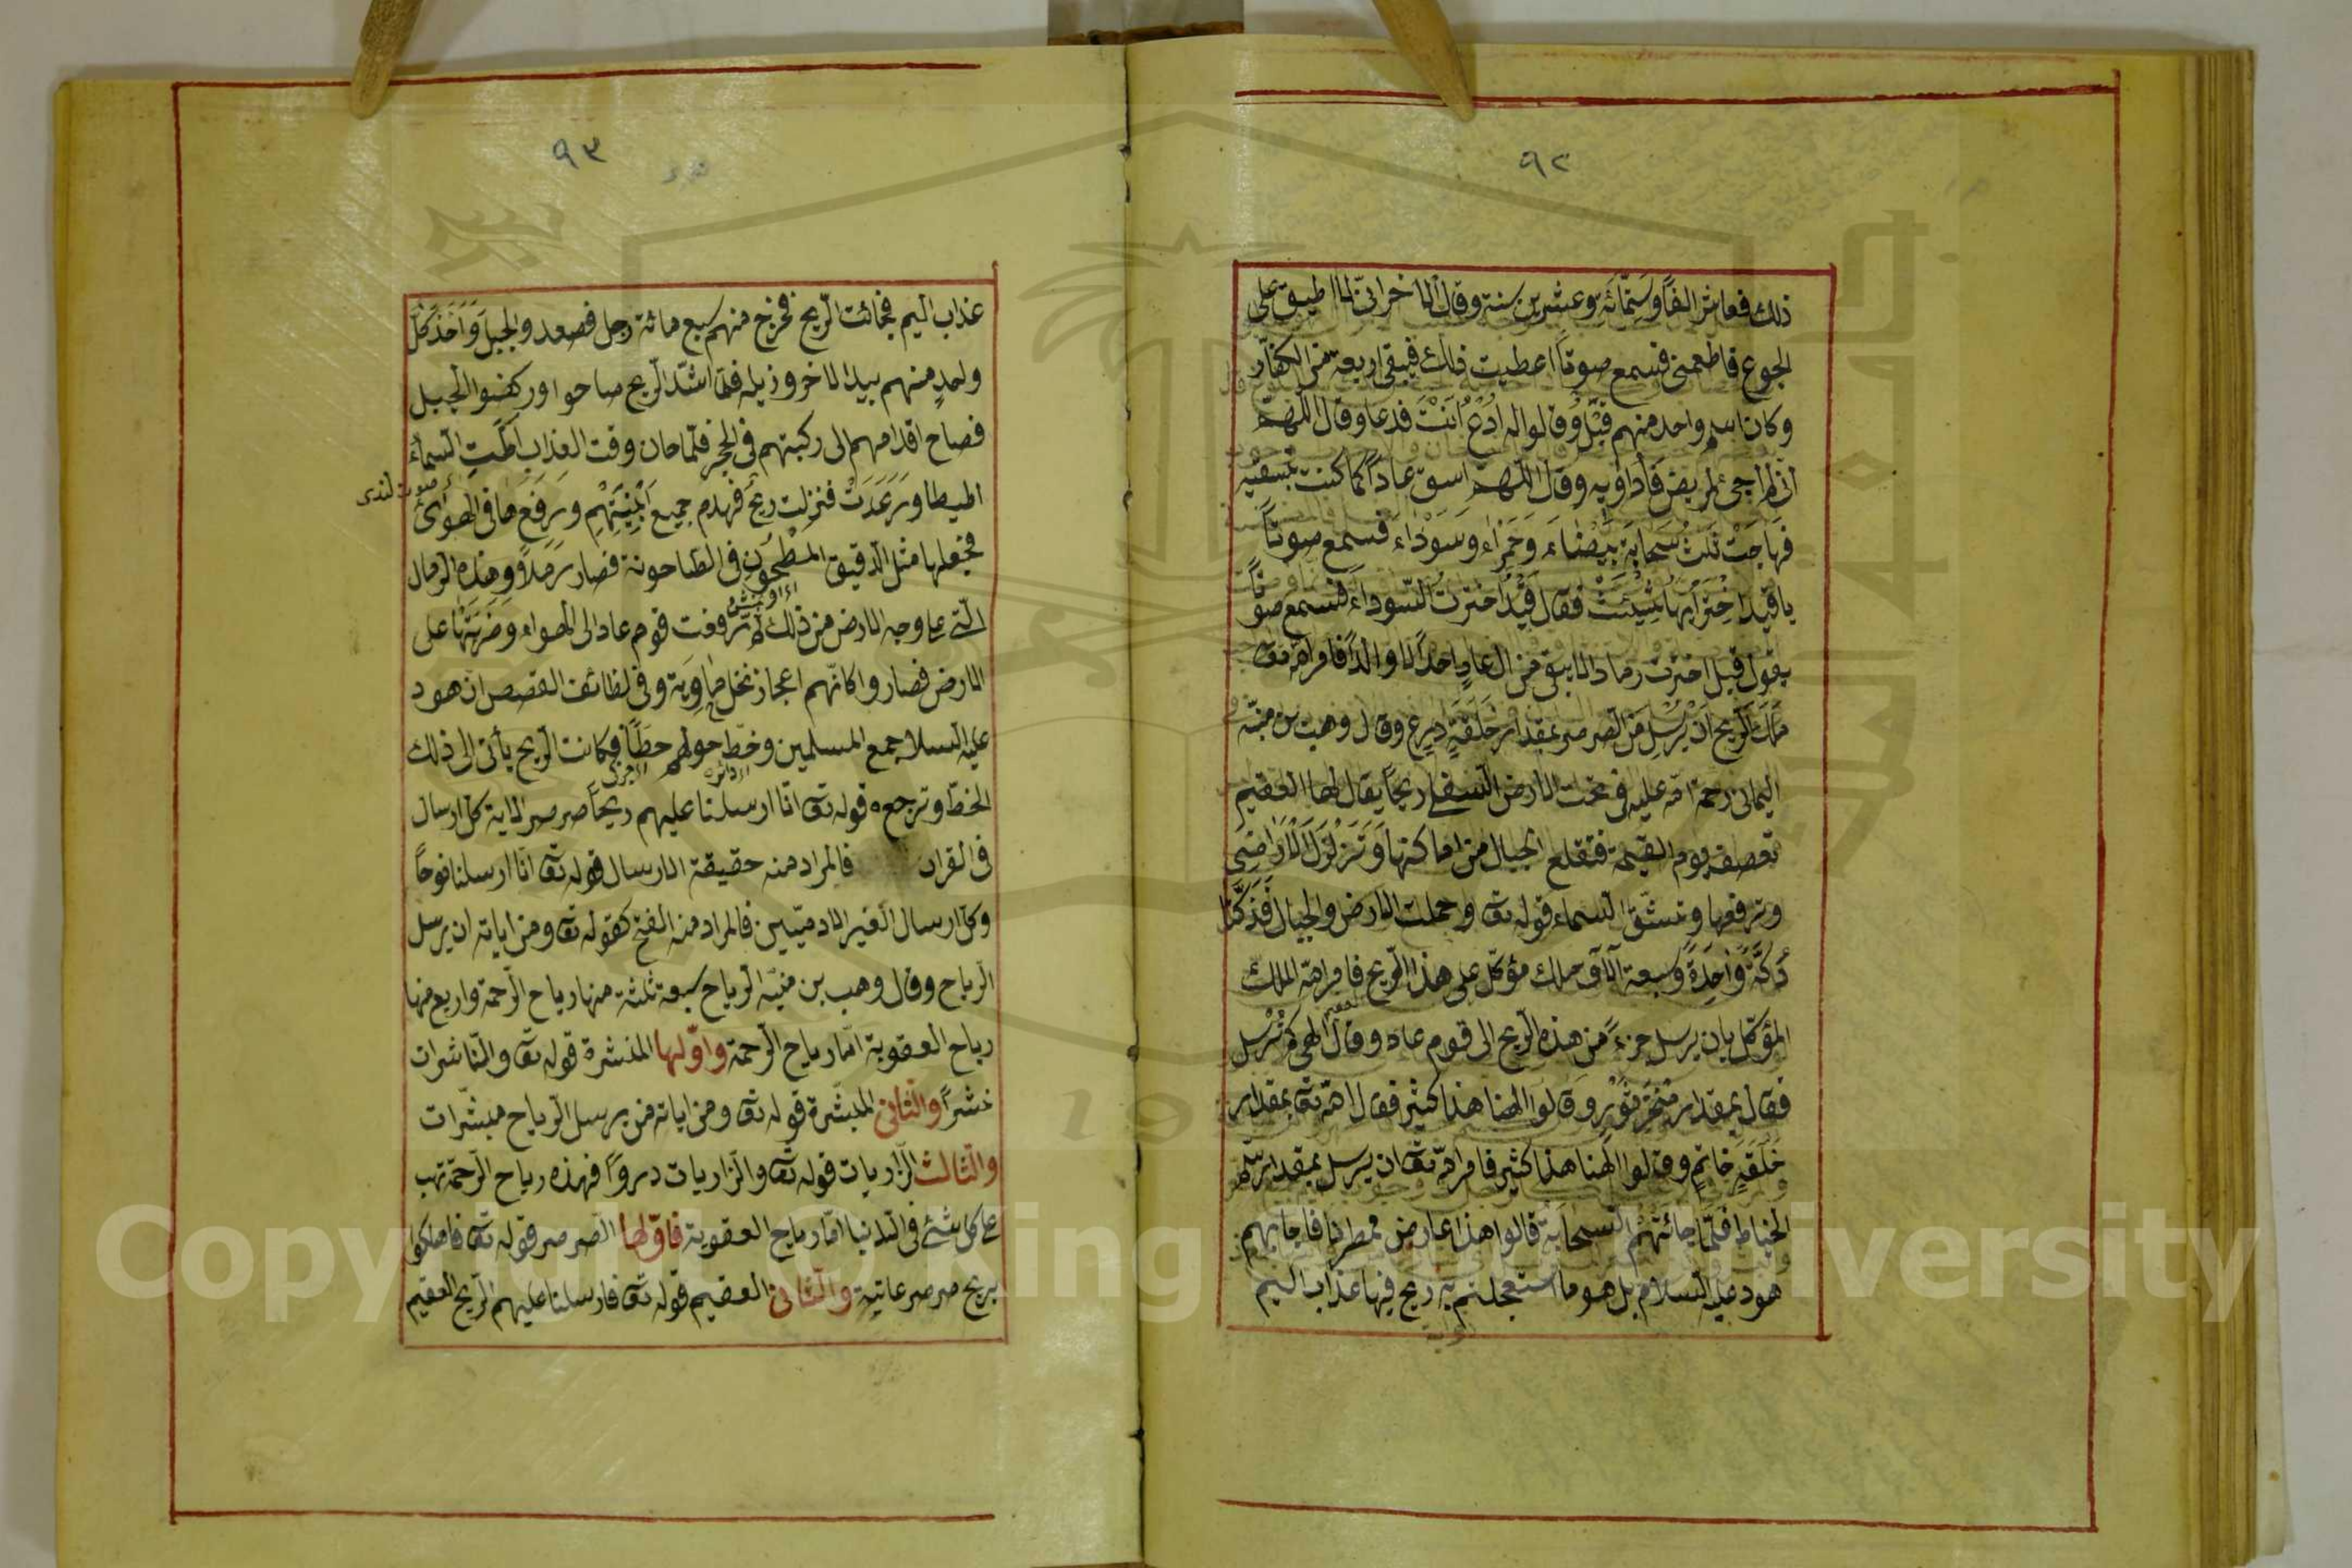 ٩٢
ذلك فعاش الفاً وستمّائة وعشرين سنة وقال الاخر انّى لا اطيق على
الجوع فاطعمنى فسمع صوتاً اعطيت ذلك فبقى اربعة من الكفّار
وكان اسم واحد منهم قيل وقالوا له ادع انت فدعا وقال اللّهمّ
انّى لم اجئ لمريض فاداويه وقال اللّهمّ اسق عاداً كما كنت تسقيه
فهاجت ثلث سحابة بيضاء وحمراء وسوداء فسمع صوتاً
يا قيل اختر ايّها شيئت فقال قيل اخترت السّوداء فسمع صوتاً
يقول قيل اخترت رمادا لا يبقى من ال عاد احداً لا والداً فامر الله تع
ملك الرّيح ان يرسل من الصرصر بمقدار حلقة درع وقال وهب بن منبّه
اليمانى رحمة الله عليه فى تحت الارض السفلى ريحاً يقال لها العقيم
تعصف يوم القيمة فتقلع الجبال من اماكنها وتزلزل الاراضى
وترفعها وتشقّ السماء قوله تع وحملت الارض والجبال فدكّتا
دكّة واحدة وسبعة آلاف ملك مؤكّل على هذا الرّيح فامر الله الملك
المؤكّل بان يرسل جزءً من هذه الرّيح الى قوم عاد وقال الهى كم نرسل
فقال بمقدار منخر ثور وقالوا الهنا هذا كثير فقال الله تع بمقدار
حلقة خاتم وقالوا الهنا هذا كثير فامر الله تع ان يرسل بمقدار سمّ
الخياط فلمّا جائتهم السحابة قالوا هذا عارض ممطرنا فاجابهم
هود عليه السلام بل هو ما استعجلتم به ريح فيها عذاب اليم
٩٣
عذاب اليم فجائت الرّيح فخرج منهم سبع مائة رجل فصعدو الجبل واخذ كلّ
واحد منهم بيد الاخر وذيله فلمّا اشتدّ الرّيح صاحوا وركضوا الجبل
فصاح اقدامهم الى ركبتهم فى الحجر فلمّا حان وقت العذاب اطّت السماء
صوت لندى
اطيطا ورعدت فنزلت ريح فهدم جميع ابنيتهم ورفع ما فى الهوائ
فجعلها مثل الدقيق المطحون فى الطاحونة فصار رملاً وهذه الرمال
الّتى على وجه الارض من ذلك ثمّ رفعت قوم عاد الى الهواء وضربتها على
الارض فصاروا كانّهم اعجاز نخل خاوية وفى لطائف القصص ان هود
عليه السلام جمع المسلمين وخطّ حولهم خطّاً فكانت الرّيح يأتى الى ذلك
الخطّ وترجع قوله تع انّا ارسلنا عليهم ريحاً صرصر الاية كل ارسال
فى القران فالمراد منه حقيقة الارسال قوله تع انّا ارسلنا نوحاً
وكل ارسال الغير الادميّين فالمراد منه الفتح كقوله تع ومن اياته ان يرسل
الرّياح وقال وهب بن منبّه الرّياح سبعة ثلثة منها رياح الرّحمة واربع منها
رياح العقوبة امّا رياح الرّحمة واوّلها المنشرة قوله تع والنّاشرات
نشراً والثانى المبشّرة قوله تع ومن اياته من يرسل الرّياح مبشّرات
والثالث الزّاريات قوله تع والزّاريات دروًا فهذه رياح الرّحمة تهب
على كل شئ فى الدنيا امّا رياح العقوبة فاوّلها الصّرصر قوله تع فاهلكوا
بريح صرصر عاتية والثّانى العقيم قوله تع فارسلنا عليهم الرّيح العقيم
Copyright © King Saud University